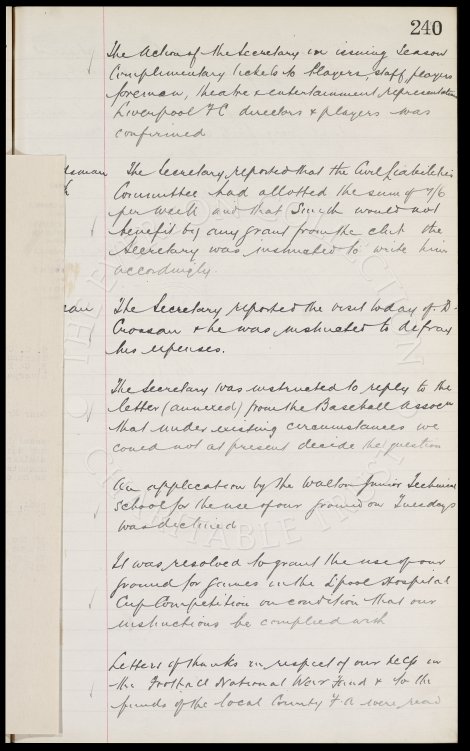 240
The Action of the Secretary in issuing Season
Complimentary tickets to Players, staff, players
foreman, theatre & entertainment representatives
Liverpool FC directors & players was
confirmed
dsman The Secretary reported that the Civil Liabilities
Committee had allotted the sum of 7/6
per week and that Smith would not
benefit by any grant from the club the
Secretary was instructed to write him
accordingly.
The Secretary reported the visit today of D.
Crossan & he was instructed to defray
his expenses.
The Secretary was instructed to reply to the
letter (annexed) from the Baseball Assocn
that under existing circumstances we
could not at present decide the question
An application by the Walton Junior Technical
School for the use of our ground on Tuesdays
was declined
It was resolved to grant the use of our
ground for games in the L'pool Hospital
Cup Competition on condition that our
instructions be complied with
Letters of thanks in respect of our help in
the Football National War Fund & to the
funds of the local County F.A. were read
CHARITABLE TRUST